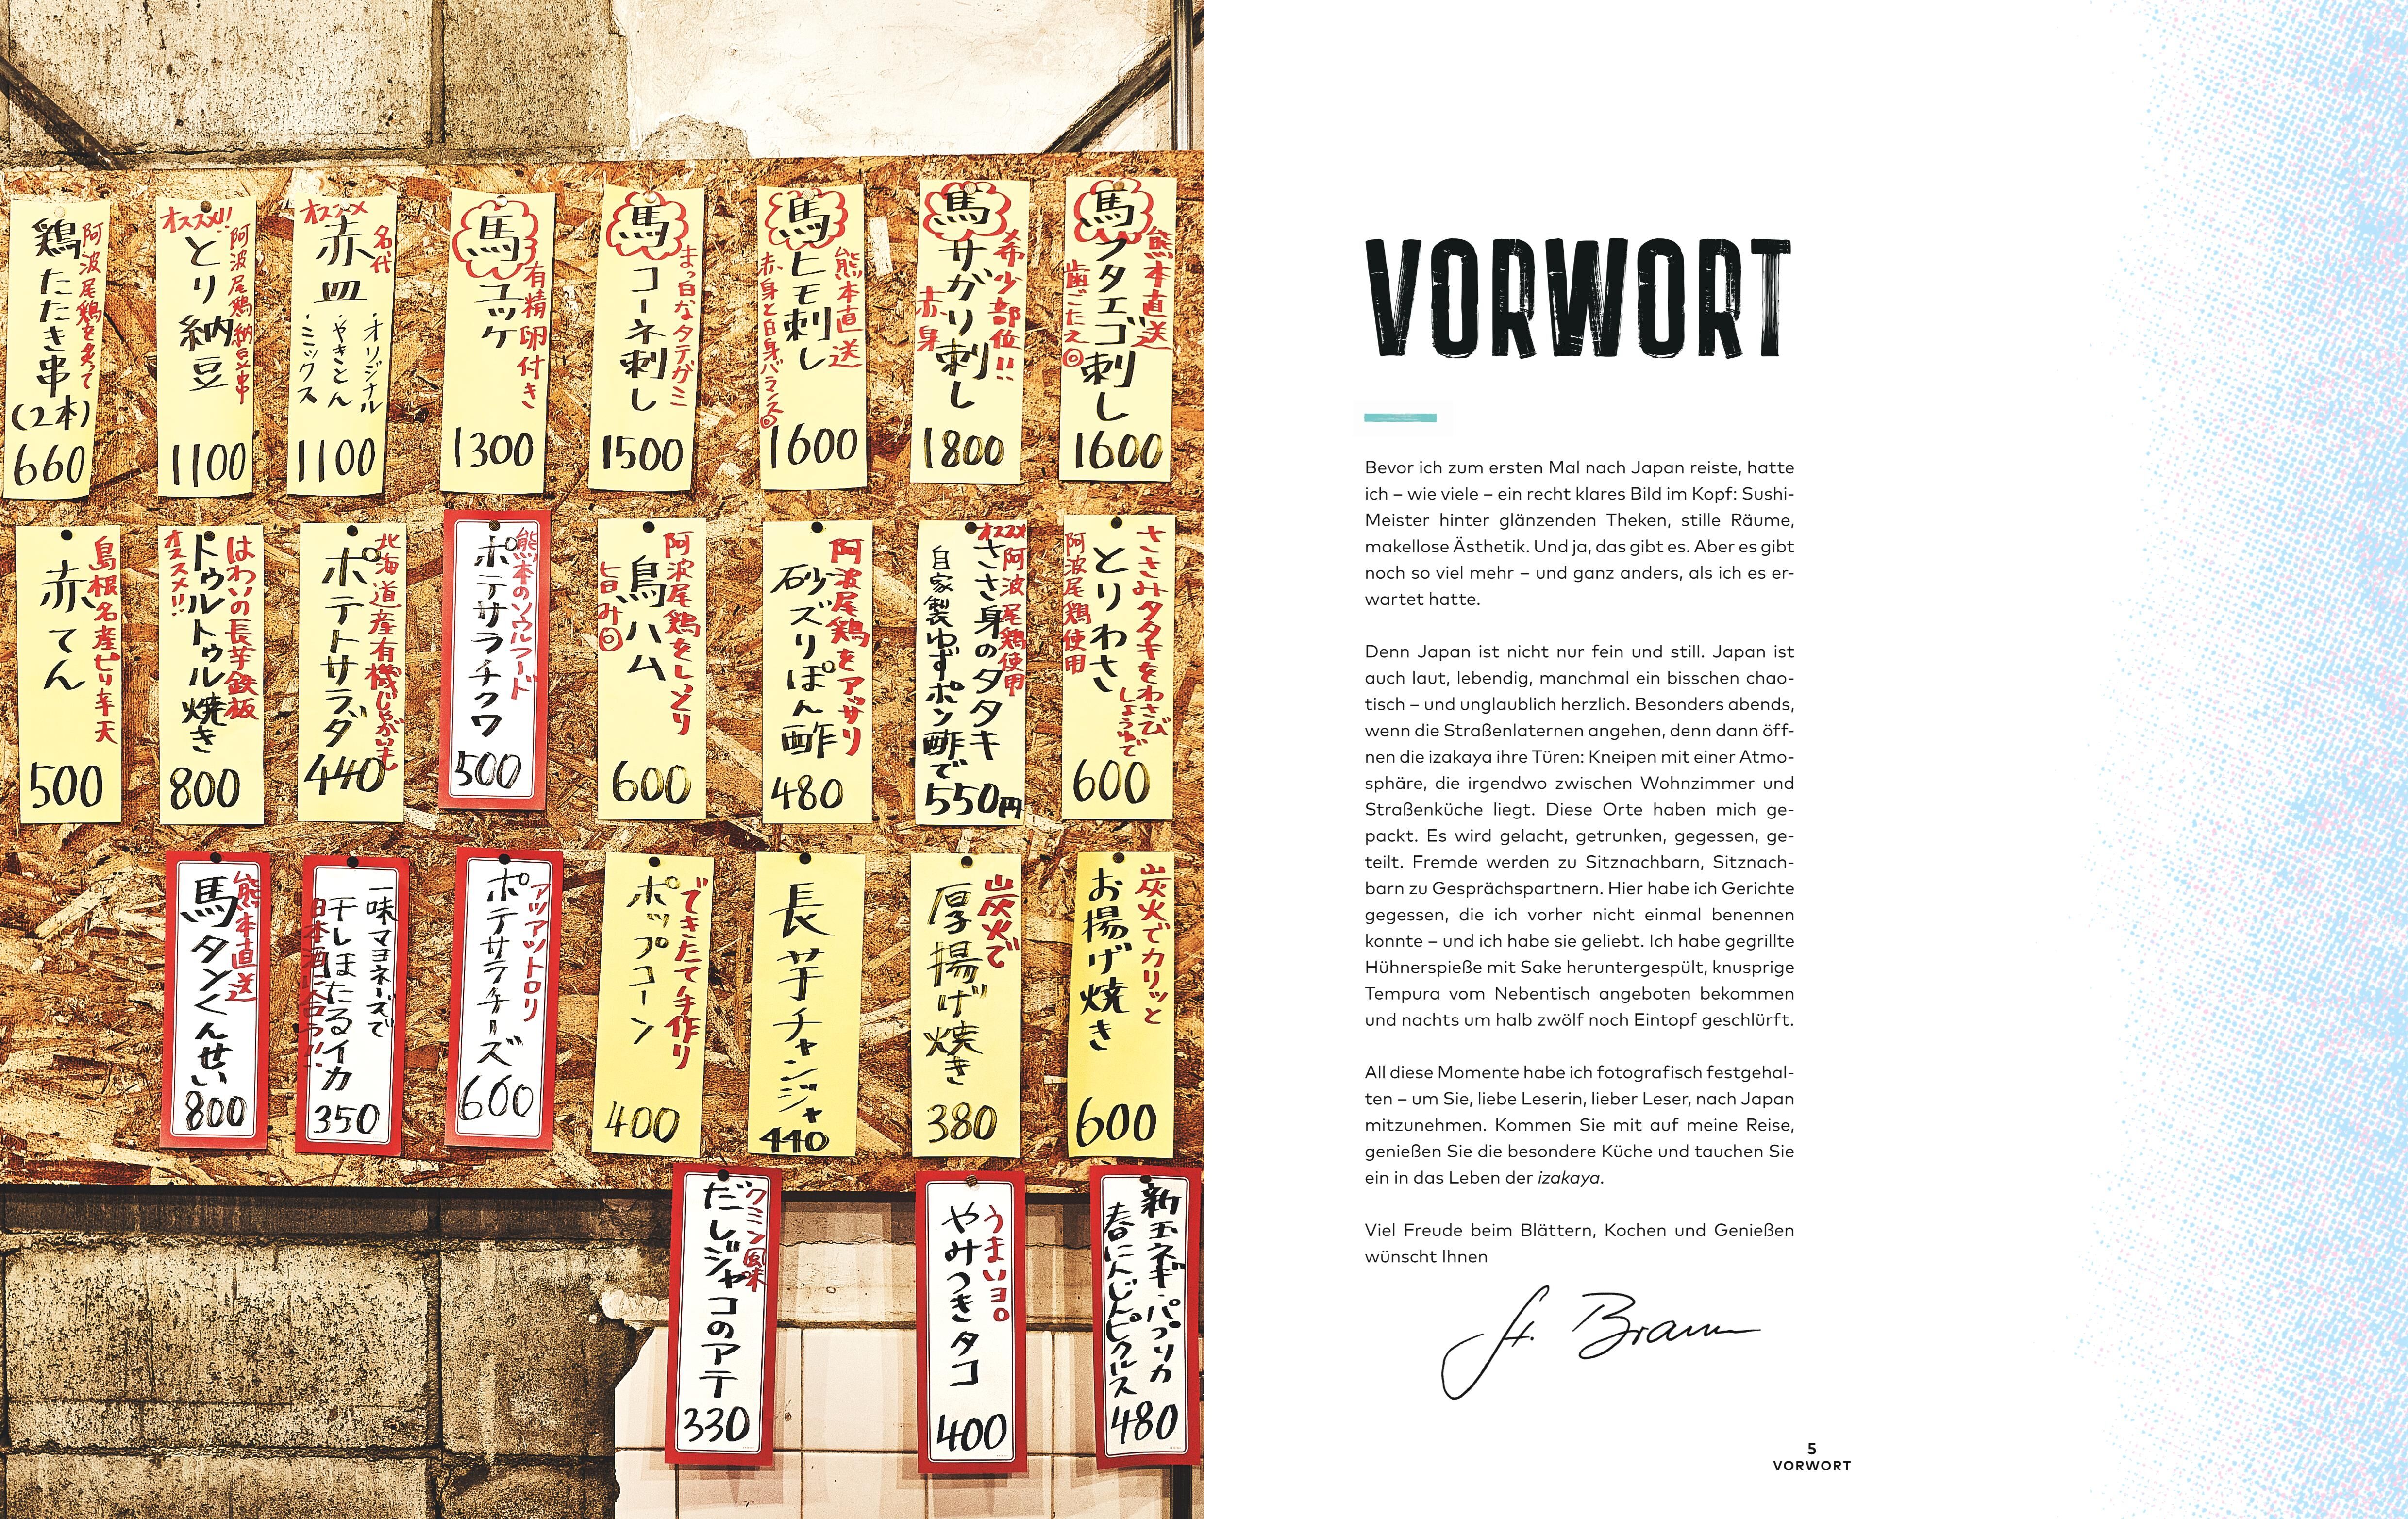 阿波尾鶏を炙って
鶏たたき串
(2本)
660
オススメ!!
阿波尾鶏納豆串
とり納豆
1100
オススメ
名代
赤皿
・オリジナル
・やきとん
・ミックス
1100
馬ユッケ
有精卵付き
1300
まっ白なタテガミ
馬コーネ刺し
1500
熊本直送
馬ヒモ刺し
赤身と白身バランス◎
1600
希少部位!!
馬サガリ刺し
赤身
1800
熊本直送
馬フタエゴ刺し
歯ごたえ◎
1600
島根名産ピリ辛天
赤てん
500
はわいの長芋鉄板
トゥルトゥル焼き
オススメ!!
800
北海道産有機じゃがいも
ポテトサラダ
440
熊本のソウルフード
ポテサラチクワ
500
阿波尾鶏をしっとり
鳥ハム
旨み◎
600
阿波尾鶏をアッサリ
砂ズリぽん酢
480
オススメ
阿波尾鶏使用
ささ身のタタキ
自家製ゆずポン酢で
550円
ささみタタキをわさび
しょうゆで
とりわさ
阿波尾鶏使用
600
熊本直送
馬タンくんせい
800
一味マヨネーズで
干しほたるイカ
日本酒に合う!!
350
アツアツトロリ
ポテサラチーズ
600
できたて手作り
ポップコーン
400
長芋チャンジャ
440
炭火で
厚揚げ焼き
380
炭火でカリッと
お揚げ焼き
600
クミン風味
だしジャコのアテ
330
うまいヨロ
やみつきタコ
400
新玉ネギ・パプリカ
春にんじんピクルス
480
VORWORT
Bevor ich zum ersten Mal nach Japan reiste, hatte
ich – wie viele – ein recht klares Bild im Kopf: Sushi-
Meister hinter glänzenden Theken, stille Räume,
makellose Ästhetik. Und ja, das gibt es. Aber es gibt
noch so viel mehr – und ganz anders, als ich es er-
wartet hatte.
Denn Japan ist nicht nur fein und still. Japan ist
auch laut, lebendig, manchmal ein bisschen chao-
tisch – und unglaublich herzlich. Besonders abends,
wenn die Straßenlaternen angehen, denn dann öff-
nen die izakaya ihre Türen: Kneipen mit einer Atmo-
sphäre, die irgendwo zwischen Wohnzimmer und
Straßenküche liegt. Diese Orte haben mich ge-
packt. Es wird gelacht, getrunken, gegessen, ge-
teilt. Fremde werden zu Sitznachbarn, Sitznach-
barn zu Gesprächspartnern. Hier habe ich Gerichte
gegessen, die ich vorher nicht einmal benennen
konnte – und ich habe sie geliebt. Ich habe gegrillte
Hühnerspieße mit Sake heruntergespült, knusprige
Tempura vom Nebentisch angeboten bekommen
und nachts um halb zwölf noch Eintopf geschlürft.
All diese Momente habe ich fotografisch festgehal-
ten – um Sie, liebe Leserin, lieber Leser, nach Japan
mitzunehmen. Kommen Sie mit auf meine Reise,
genießen Sie die besondere Küche und tauchen Sie
ein in das Leben der izakaya.
Viel Freude beim Blättern, Kochen und Genießen
wünscht Ihnen
St. Braun
5
VORWORT